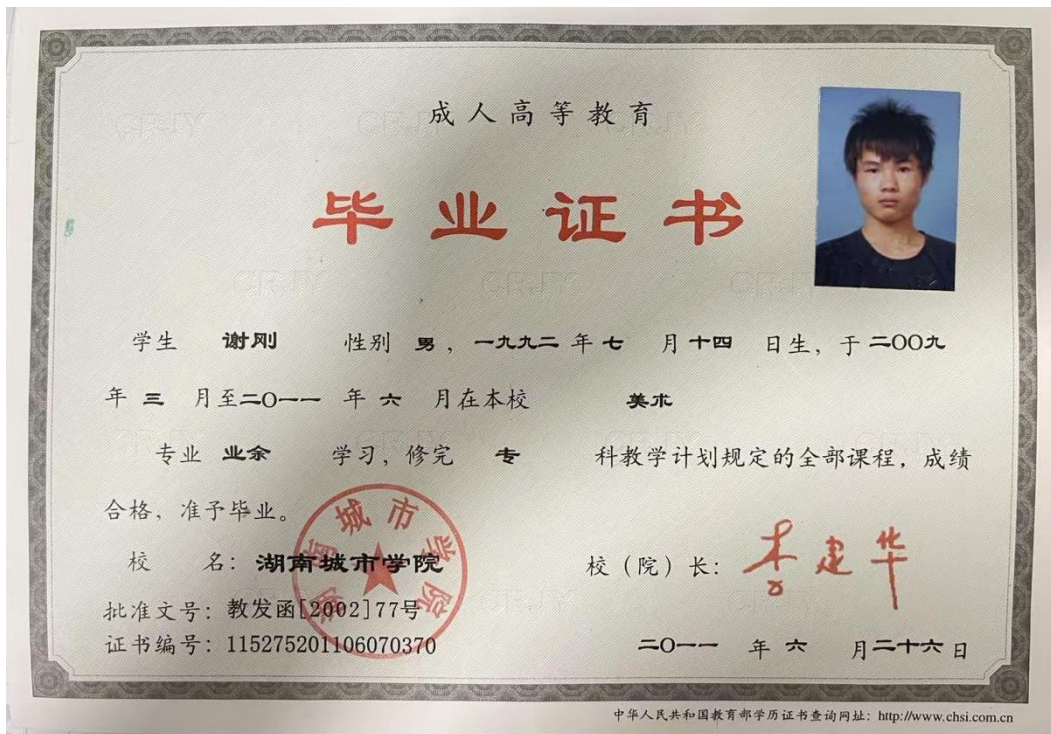 成人高等教育
毕业证书
学生 谢刚 性别 男，一九九二 年 七 月 十四 日生，于 二〇〇九
年 三 月至 二〇一一 年 六 月在本校 美术
专业 业余 学习，修完 专 科教学计划规定的全部课程，成绩
合格，准予毕业。
湖南城市学院
校 名：湖南城市学院
校（院）长：李建华
批准文号：教发函[2002]77号
证书编号：115275201106070370
二〇一一 年 六 月 二十六 日
中华人民共和国教育部学历证书查询网址：http://www.chsi.com.cn
CRJY
CRJY
CRJY
CRJY
CRJY